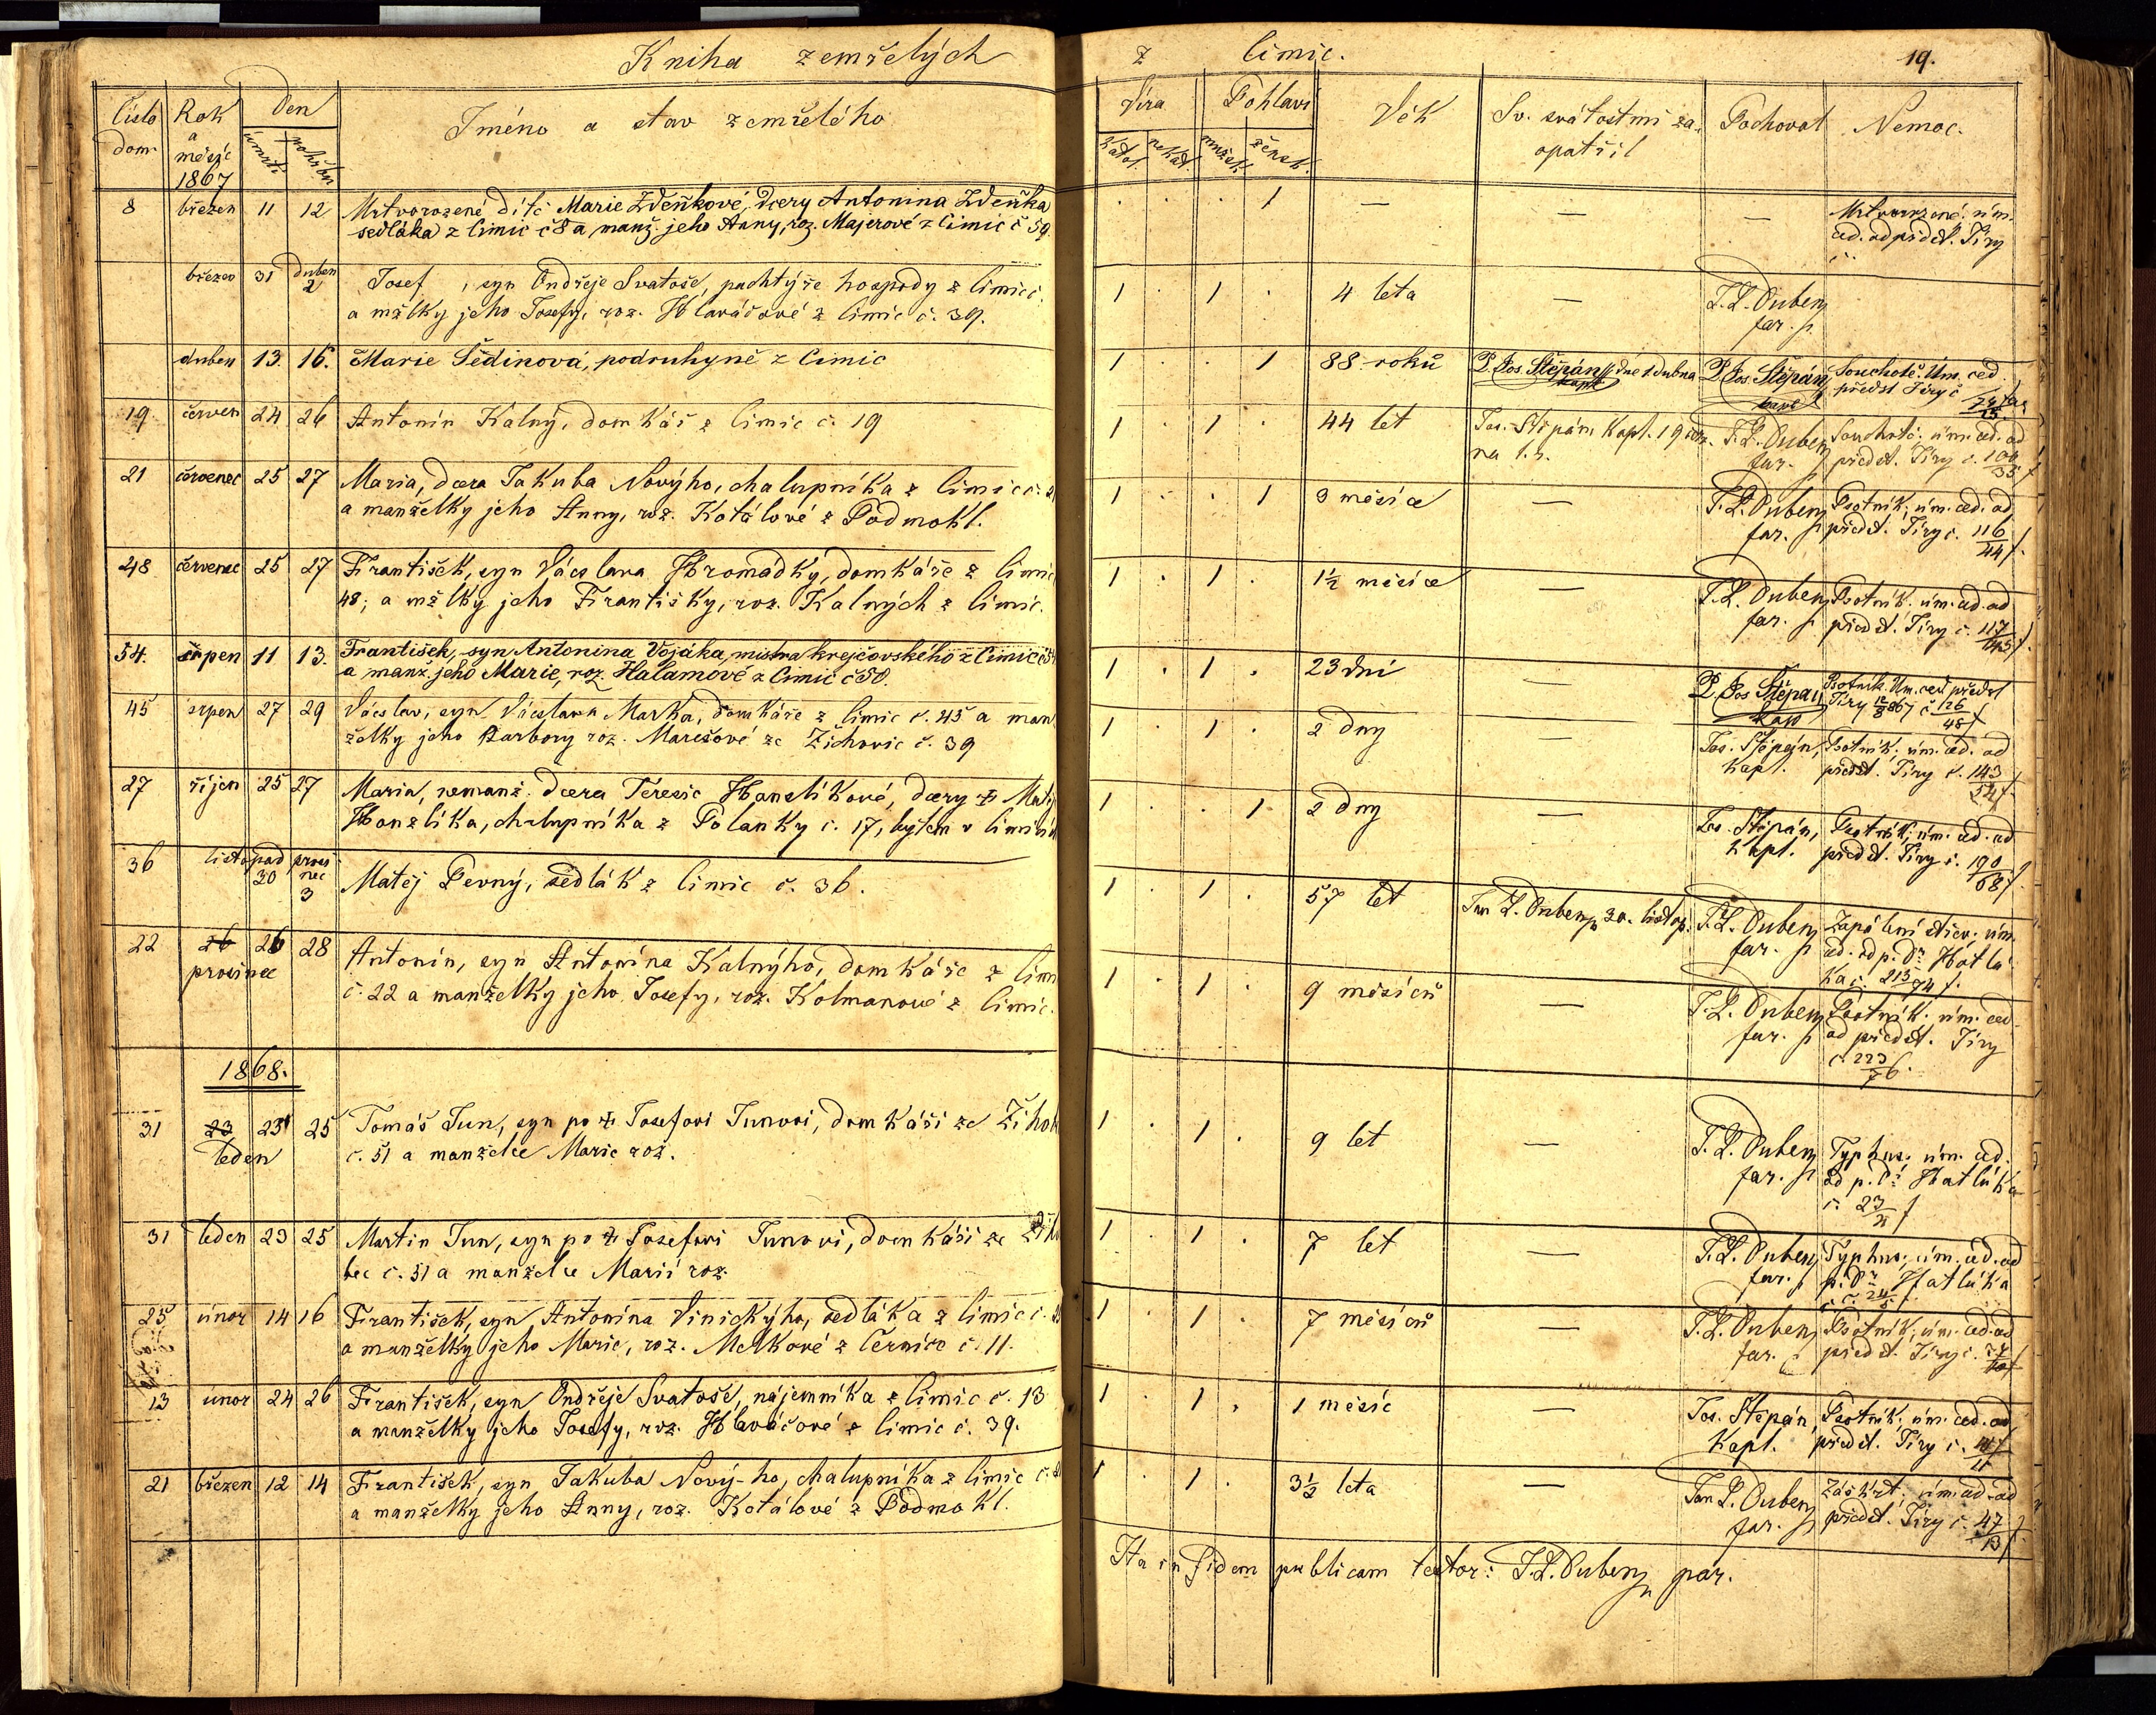 Kniha zemřelých
z Čimic.
19.
Číslo dom.
Rok a měsíc 1867
Den
úmrtí
pohřbu
Jméno a stav zemřelého
Víra
katol.
nekat.
Pohlaví
mužsk.
žensk.
Věk
Sv. svátostmi za-
opatřil
Pochoval
Nemoc.
8 březen 11 12 Mrtvorozené dítě Marie Zdeňkové, dcery Antonína Zdeňka
sedláka z Čimic č 8 a manž. jeho Anny, roz. Majerové z Čimic č 59.
1 — — — Mrtvorozené. úm.
ced. od předst. Jíry
březen 31 duben 2 Josef, syn Ondřeje Svatoše, pachtýře hospody z Čimic č.
a mžlky jeho Josefy, roz. Hlaváčové z Čimic č. 39.
1 1 4 leta — J. L. Dubenz
far.
duben 13. 16. Marie Šedinová, podruhyně z Čimic
1 1 88 roků P. Jos. Štěpán dne 1 dubna P. Jos. Štěpán Souchotě. Úm. ced.
kapl kapl předst Jíry č
19 červen 24 26 Antonín Kalný, domkář z Čimic č. 19
1 1 44 let Jos. Štěpán Kapl. 19 J. L. Dubenz Souchotě. úm. ced. od
far. předst. Jíry č. 100/35
21 červenec 25 27 Maria, dcera Jakuba Novýho, chalupníka z Čimic č. 21
a manželky jeho Anny, roz. Kotálové z Podmokl.
1 1 3 měsíce — J. L. Dubenz Psotník, úm. ced. od
far. předst. Jíry č. 116/44
48 červenec 25 27 František, syn Václava Hromadky, domkáře z Čimic
48; a mžlky jeho Františky, roz. Kalných z Čimic.
1 1 1½ měsíce — J. L. Dubenz Psotník. úm. ced. od
far. předst. Jíry č. 117/45
54. srpen 11 13. František, syn Antonína Vojáka, mistra krejčovského z Čimic č 54
a manž. jeho Marie, roz. Halamové z Čimic č 50.
1 1 23 dní — P. Jos Štěpán Psotník. Úm. ced předst
kapl Jíry 12/8 867 č 126/48
45 srpen 27 29 Václav, syn Václava Marka, domkáře z Čimic č. 45 a man
želky jeho Barbory roz. Marešové ze Žichovic č. 39
1 1 2 dny — Jos. Štěpán, Psotník. úm. ced. od
Kapl. předst. Jíry č. 143/54
27 říjen 25 27 Maria, nemanž. dcera Teresie Hanzlíkové, dcery
Hanzlíka, chalupníka z Polanky č. 17, bytem v
1 1 2 dny — Jos. Štěpán, Psotník, úm. ced. od
Kapl. předst. Jíry č. 190/68
36 listopad 30 prosinec 3 Matěj Pevný, sedlák z Čimic č. 36.
1 1 57 let Jan L. Dubenz 30. listop. J. L. Dubenz Zapálení střev. úm.
far. ced. od p. Dr. Hatlá
ka č. 213/74
22 26 prosinec 28 Antonín, syn Antonína Kalnýho, domkáře z Čimic
č. 22 a manželky jeho Josefy, roz. Kolmanové z Čimic.
1 1 9 měsíců — J. L. Dubenz Psotník. úm. ced
far. od předst. Jíry
č 223/76.
1868.
31 23 leden 25 Tomáš Jun, syn po † Josefovi Junovi, domkáři ze
č. 51 a manželce Marie roz.
1 1 9 let — J. L. Dubenz Typhus. úm. ced.
far. od p. Dr. Hatláka
č. 23
31 leden 23 25 Martin Jun, syn po † Josefovi Junovi, domkáři ze
bec č. 51 a manželce Marii roz.
1 1 7 let — J. L. Dubenz Typhus, úm. ced. od
far. p. Dr. Hatláka
č. 24/5
25 únor 14 16 František, syn Antonína Vinickýho, sedláka z Čimic č.
a manželky jeho Marie, roz. Melkové z Černíce č. 11.
1 1 7 měsíců — J. L. Dubenz Psotník, úm. ced. od
far. předst. Jíry č.
13 únor 24 26 František, syn Ondřeje Svatoše, nájemníka z Čimic č. 13
a manželky jeho Josefy, roz. Hlaváčové z Čimic č. 39.
1 1 1 měsíc — Jos. Štěpán, Psotník. úm. ced. od
Kapl. předst. Jíry č.
21 březen 12 14 František, syn Jakuba Nový-ho, chalupníka z Čimic č.
a manželky jeho Anny, roz. Kotálové z Podmokl.
1 1 3½ leta — Jan L. Dubenz Záškrt. úm. ced. od
far. předst. Jíry č. 47/13
Ita in fidem publicam testor: J. L. Dubenz par.